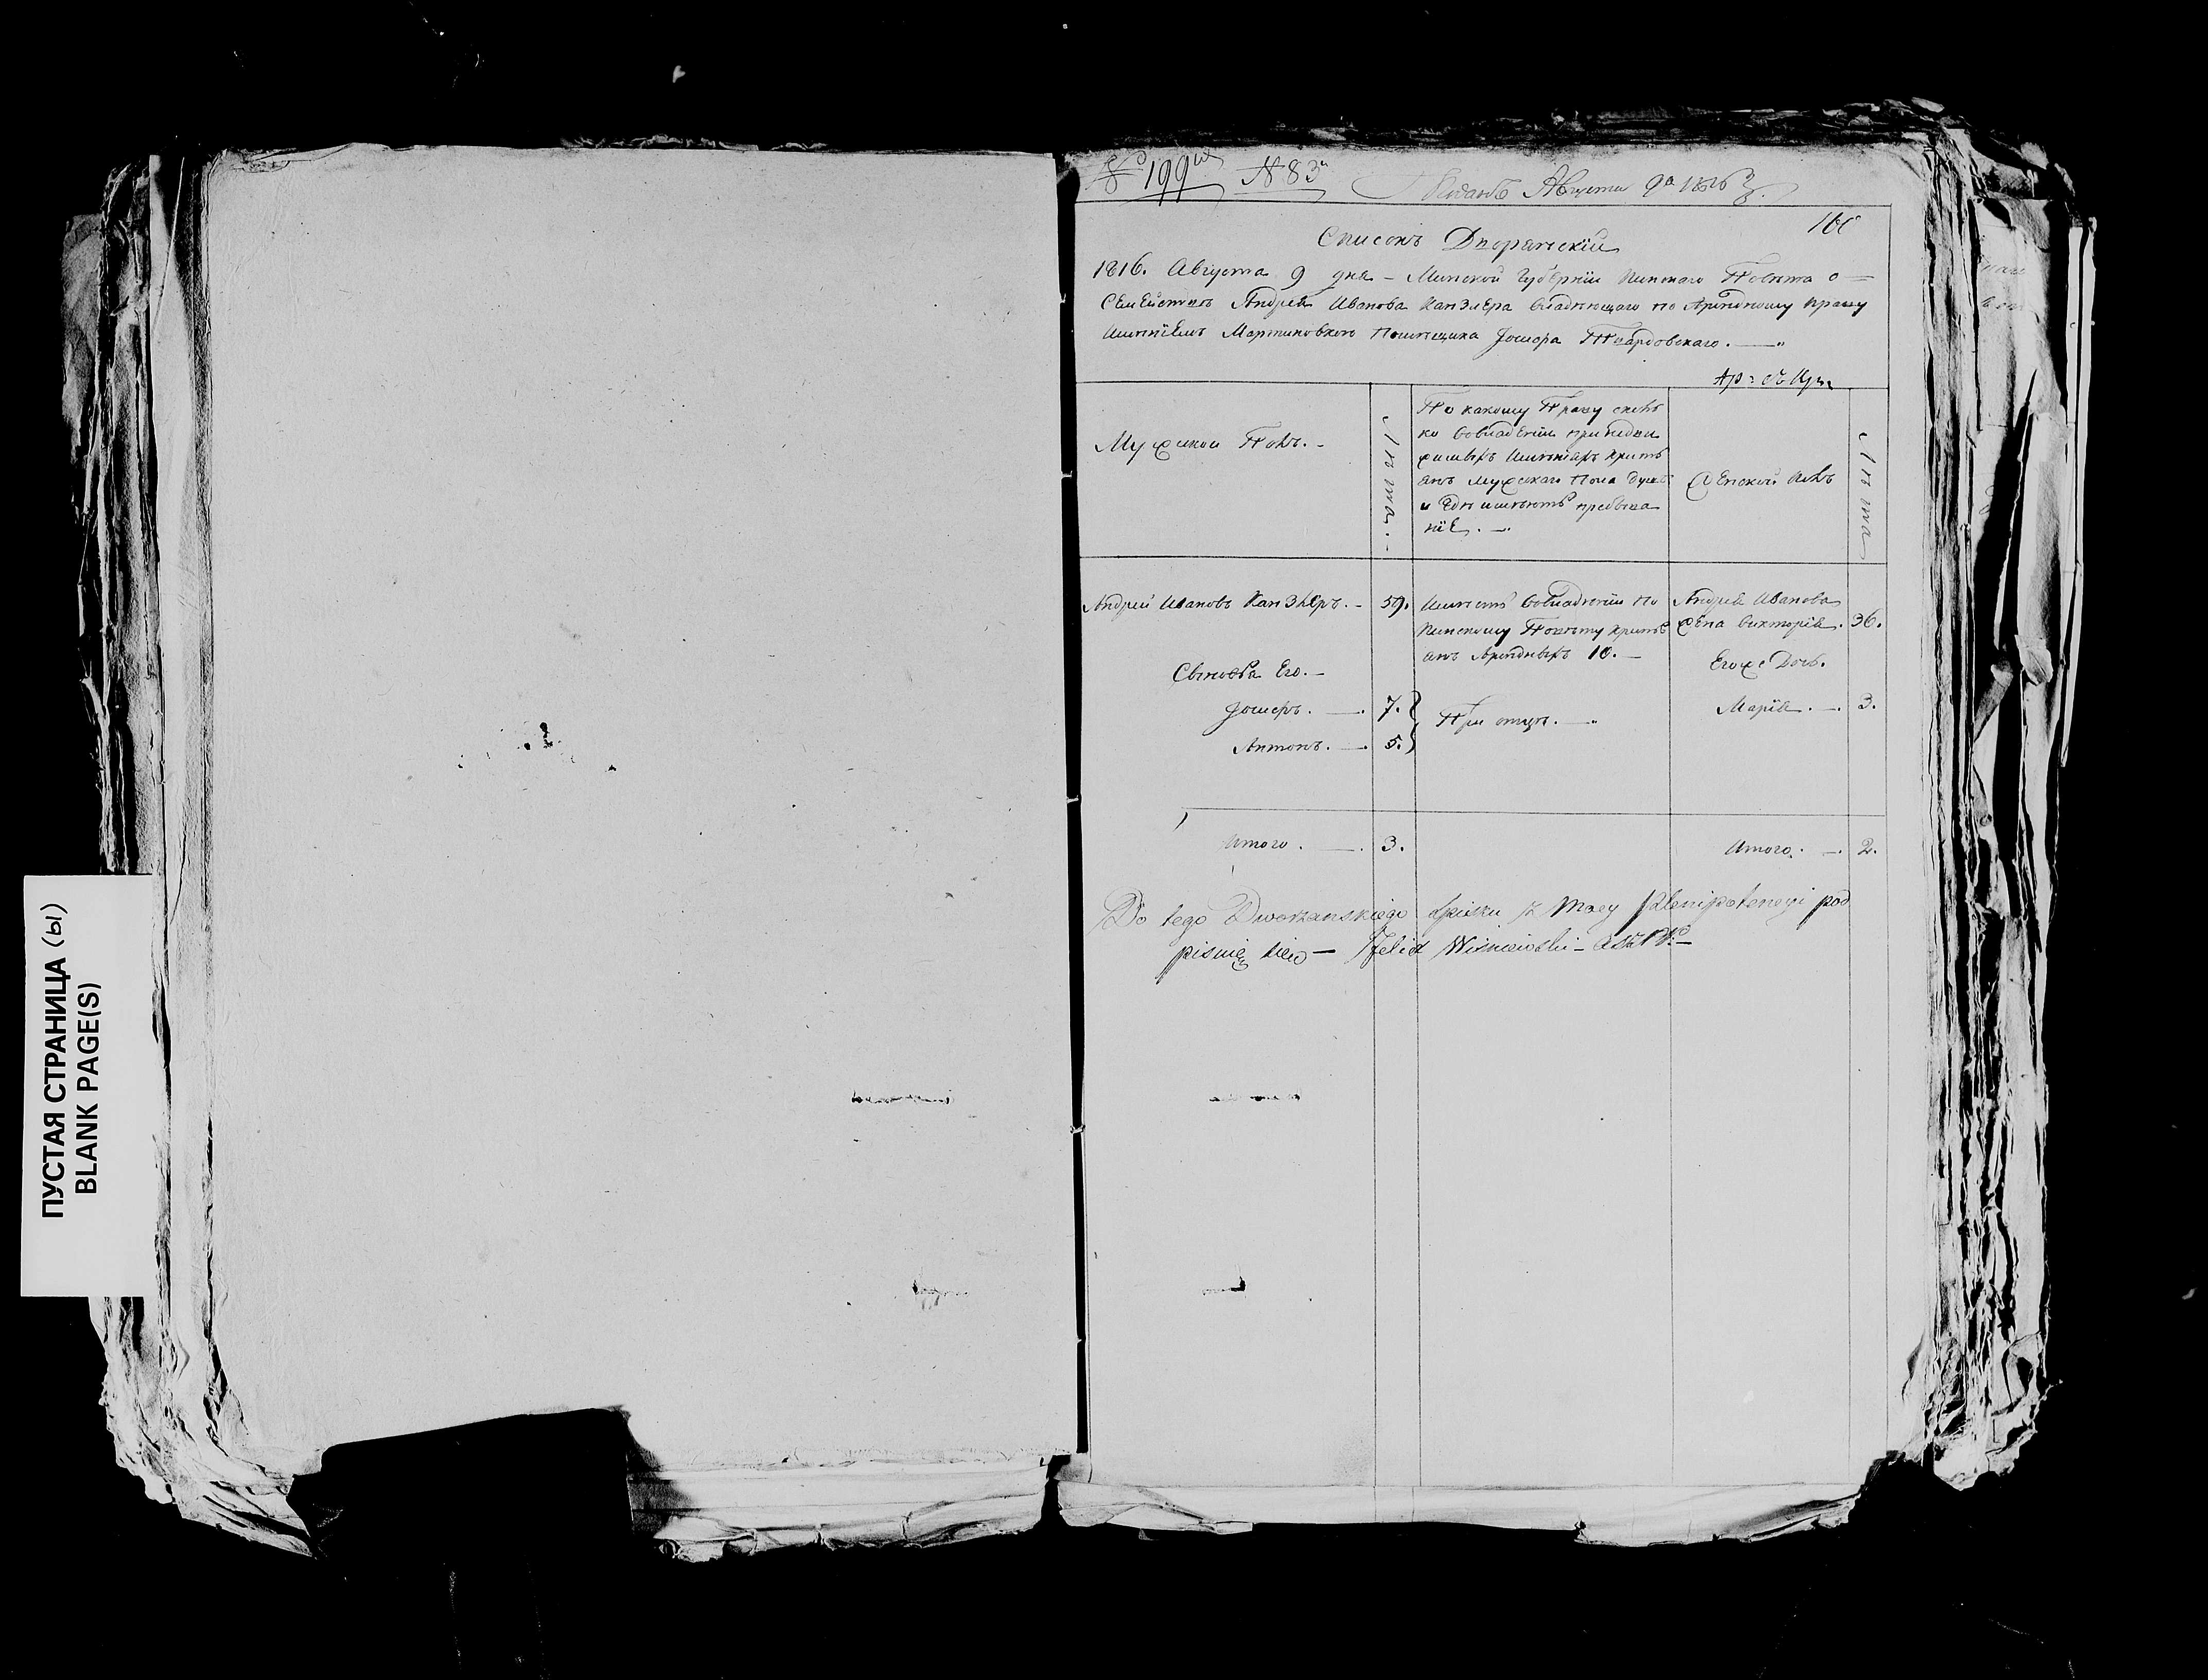 ПУСТАЯ СТРАНИЦА (Ы)
BLANK PAGE(S)
№ 199 № 83
Поданъ Августа 9º 1816
Списокъ Дворянскій
1816. Августа 9 дня – Минской Губерніи Пинскаго Повѣта о
Семействѣ Андрея Иванова Канзлера владѣющаго по Арендному праву
имѣніемъ Мартиновкою Помѣщика Іосифа Твардовскаго. —
Мужской Полъ. –
Лѣта. –
По какому Праву сколь
ко во владѣніи при недви
жимыхъ имѣніяхъ крить
янъ мужскаго пола душъ
и гдѣ имѣютъ пребыва
ніе. —
Женской полъ
Лѣта
Андрей Ивановъ Канзлеръ. – 59.
Имѣетъ во владѣніи по
Пинскому Повѣту крить
янъ Арендныхъ 10. —
Андрея Иванова
жена Викторія. 36.
Сыновья Его. –
Егоже Дочь.
Іосифъ. —. 7.
При отцѣ. —
Марія. —. 3.
Антонъ. —. 5.
Итого. —. 3.
Итого. —. 2.
Do tego Dworzanskiego Spisku z Mocy Plenipotencyi pod
pisuię sieię — Felix Wisniewski –